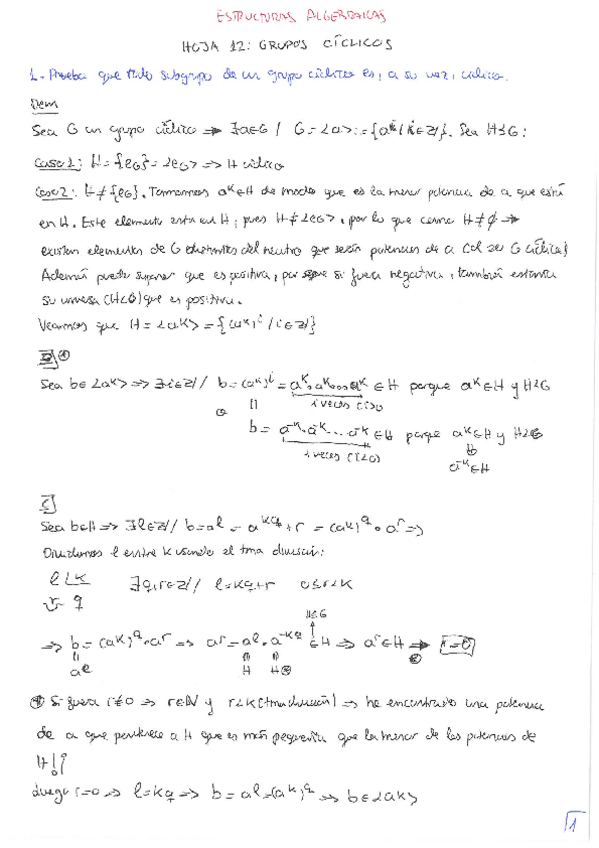 ESTRUCTURAS ALGEBRAICAS
HOJA 12: GRUPOS CÍCLICOS
1.- Prueba que todo subgrupo de un grupo cíclico es, a su vez, cíclico.
Dem
Sea G un grupo cíclico => ∃a∈G / G = <a> := {a^k / k∈Z}. Sea H≤G:
Caso 1: H = {e_G} = <e_G> => H cíclico
Caso 2: H ≠ {e_G}. Tomamos a^k∈H de modo que es la menor potencia de a que está
en H. Este elemento está en H, pues H ≠ <e_G>, por lo que como H ≠ ∅ =>
existen elementos de G distintos del neutro que serán potencias de a (al ser G cíclico)
Además puedo suponer que es positiva, por si fuera negativa, también estaría
su inversa (H<G) que es positiva.
Veamos que H = <a^k> = {(a^k)^i / i∈Z}
⊇
Sea b∈<a^k> => ∃i∈Z / b = (a^k)^i = a^k · a^k ... a^k ∈ H porque a^k∈H y H≤G
i veces (i>0)
b = a^-k · a^-k ... a^-k ∈ H porque a^k∈H y H≤G
i veces (i<0)
a^-k∈H
⊆
Sea b∈H => ∃l∈Z / b = a^l = a^(kq+r) = (a^k)^q · a^r =>
Dividimos l entre k usando el tma división:
l | k ∃q,r∈Z / l = kq+r 0≤r<k
r q
H≤G
=> b = (a^k)^q · a^r => a^r = a^l · a^-kq ∈ H => a^r∈H => r=0
a^l H H
Si fuera r≠0 => r∈N y r<k (tma división) => he encontrado una potencia
de a que pertenece a H que es más pequeña que la menor de las potencias de
H!¡
Luego r=0 => l = kq => b = a^l = (a^k)^q => b∈<a^k>
1